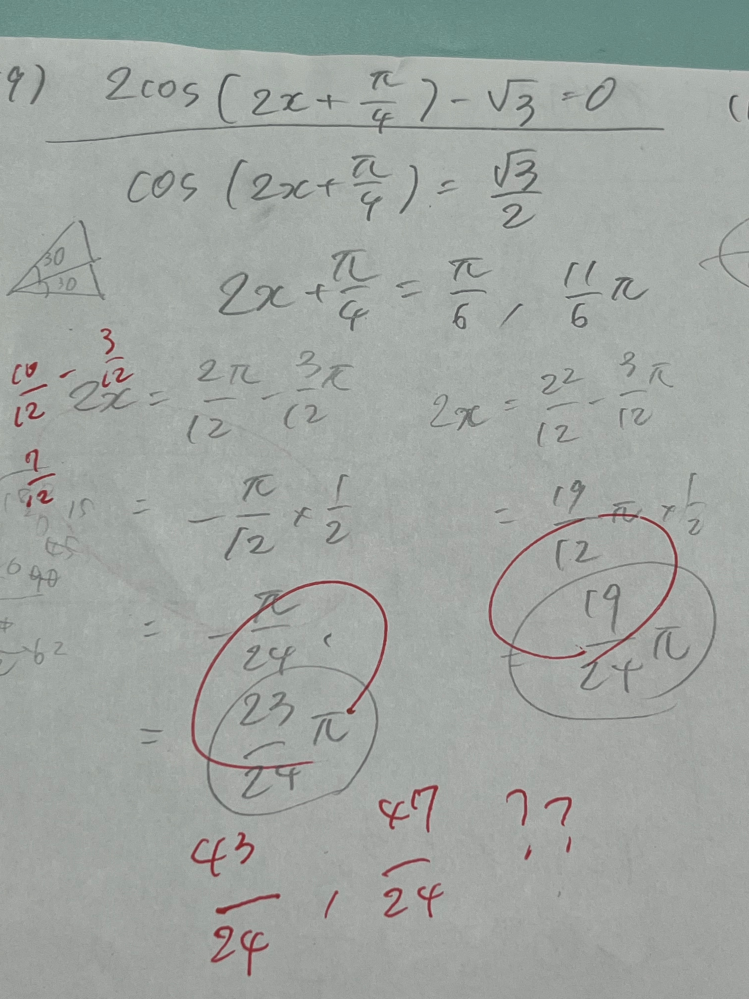 9) 2cos(2x + π/4) - √3 = 0
cos(2x + π/4) = √3/2
30
30
2x + π/4 = π/6, 11/6 π
10/12 - 3/12
2x = 2π/12 - 3π/12
2x = 22/12 - 3/12 π
7/12
= -π/12 × 1/2
= 19/12 π × 1/2
= -π/24,
= 19/24 π
= 23/24 π
43/24, 47/24 ??